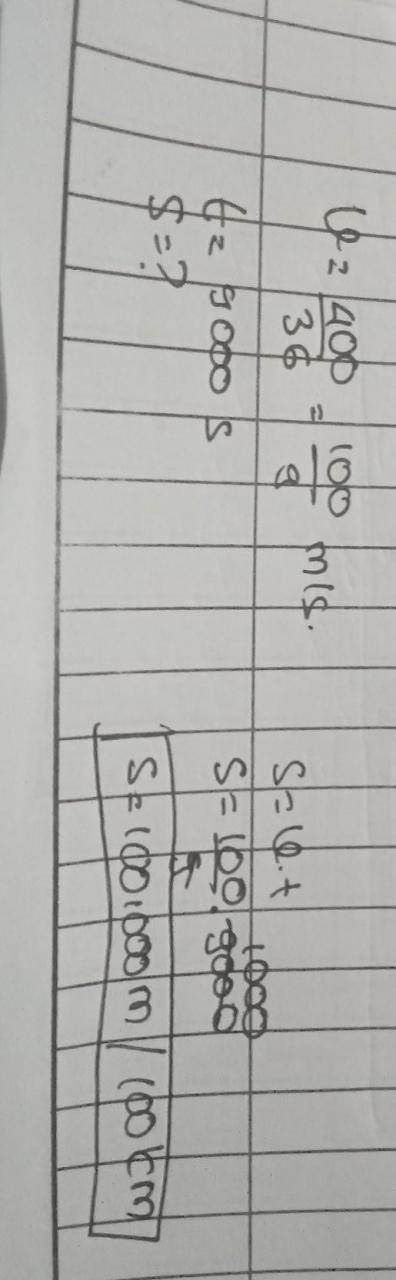 v = 400/36 = 100/9 m/s.
t = 9000 s
S = ?
S = v.t
S = 100/9 . 9000 1000
S = 100.000 m / 100 km